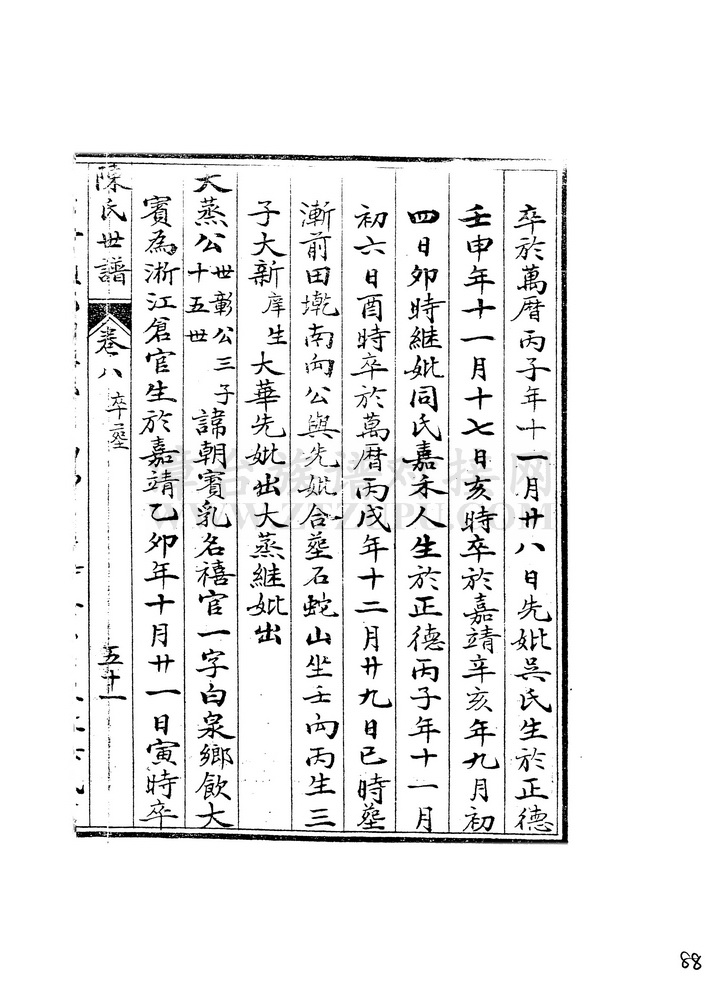 卒於萬曆丙子年十一月廿八日先妣吳氏生於正德
壬申年十一月十七日亥時卒於嘉靖辛亥年九月初
四日卯時継妣同氏嘉禾人生於正德丙子年十一月
初六日酉時卒於萬曆丙戌年十二月廿九日巳時塟
漸前田墘南向公與先妣合塟石蛇山坐壬向丙生三
子大新庠生大華先妣出大蒸継妣出
大蒸公十五世世彰公三子諱朝賓乳名禧官一字白泉鄉飲大
賓為浙江倉官生於嘉靖乙卯年十月廿一日寅時卒
陳氏世譜 卷八 卒塟 五十一
88